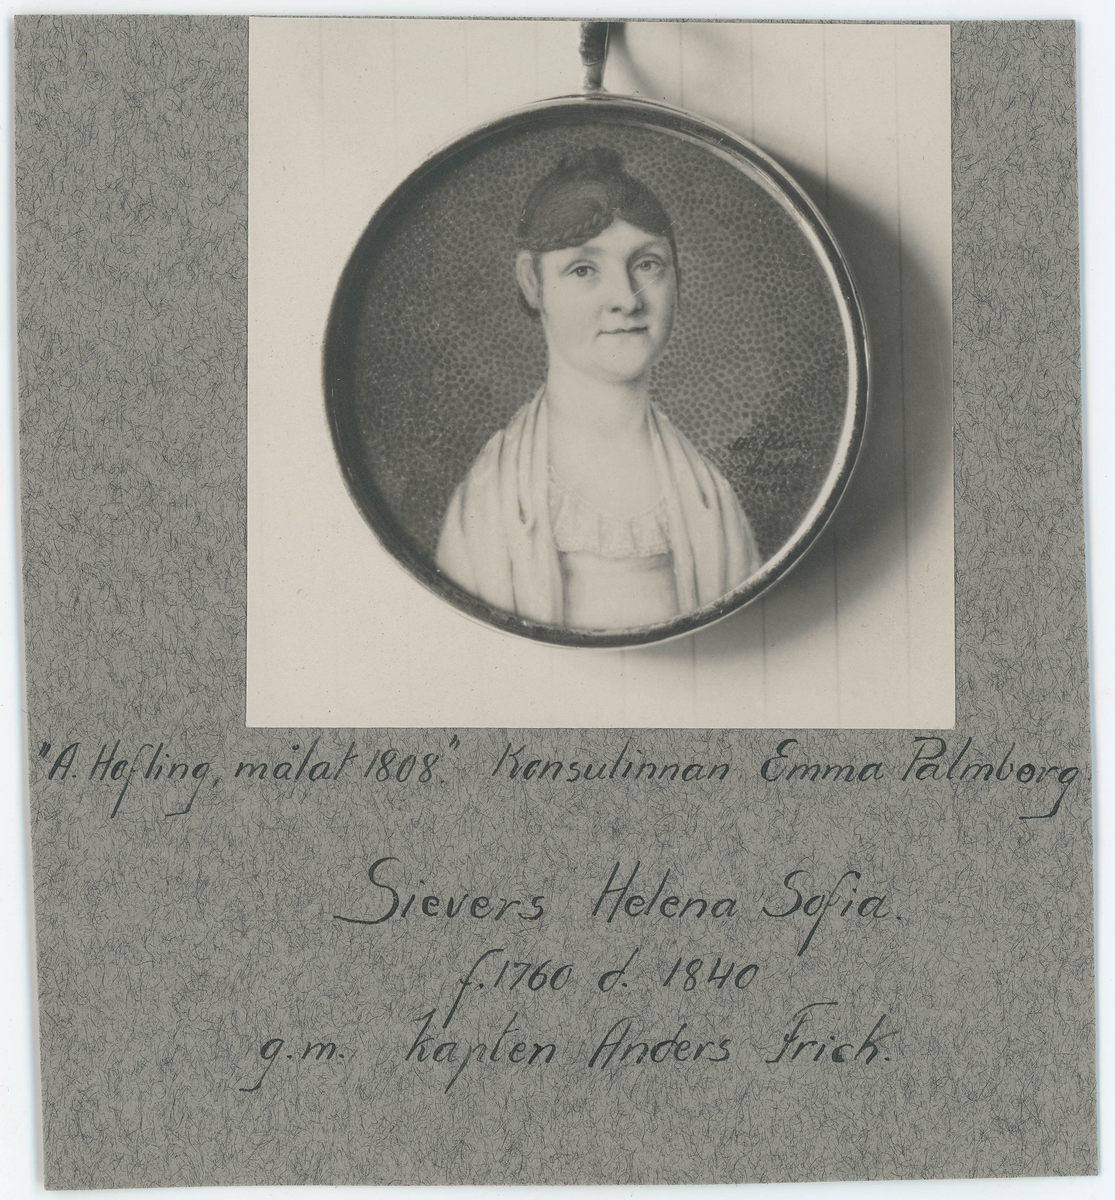 "A. Hofling, målat 1808." Konsulinnan Emma Palmborg.
Sievers Helena Sofia.
f. 1760 d. 1840
g.m. kapten Anders Frick.